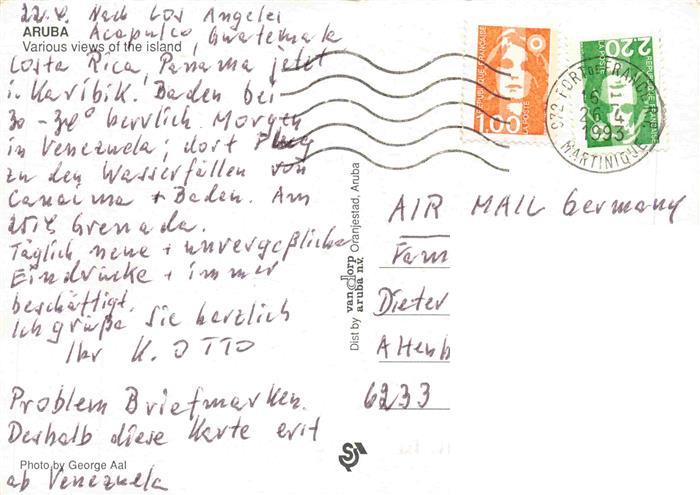 22.4. Nach Los Angeles
ARUBA
Acapulco, Guatemala
Various views of the island
Costa Rica, Panama jetzt
i. Karibik. Baden bei
30-34° herrlich. Morgen
in Venezuela; dort Flug
zu den Wasserfällen von
Canaima + Baden. Am
25.4. Grenada.
Täglich neue + unvergeßliche
Eindrücke + immer
beschäftigt.
Ich grüße Sie herzlich
Ihr K. OTTO
Problem Briefmarken.
Deshalb diese Karte erst
Photo by George Aal
ab Venezuela
Dist by van dorp aruba n.v. Oranjestad, Aruba
REPUBLIQUE FRANÇAISE
1,00
LA POSTE
2,20
REPUBLIQUE FRANÇAISE
LA POSTE
972 FORT DE FRANCE
26-4
1993
MARTINIQUE
AIR MAIL Germany
Fam
Dieter
Altenb
6233